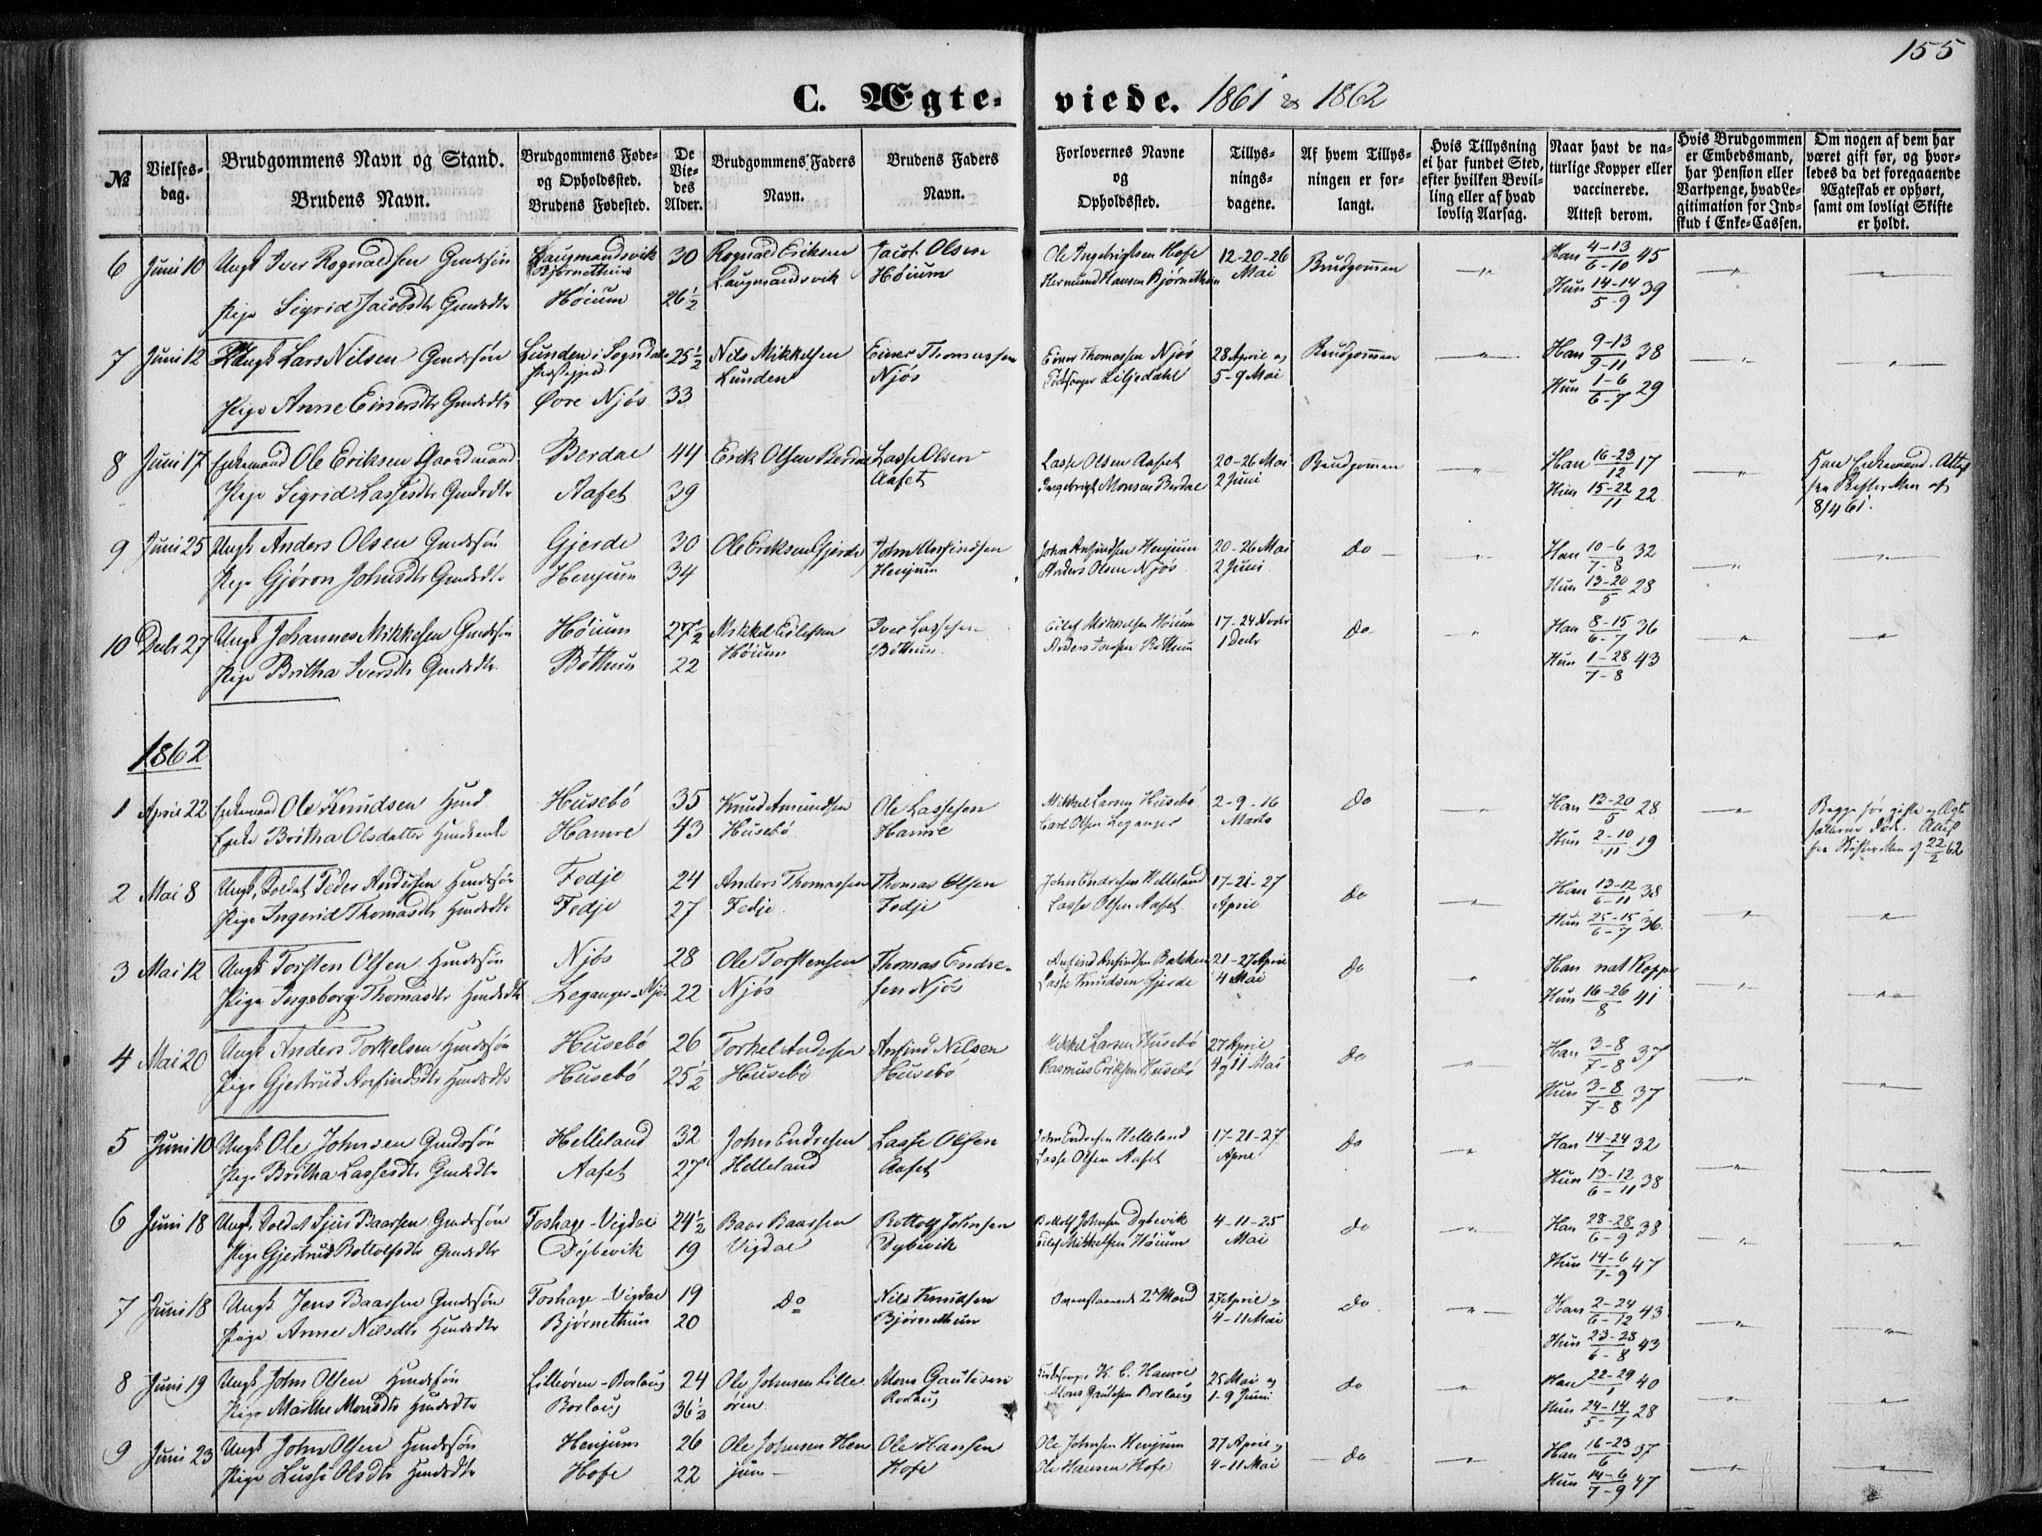 155
C. Ægteviede. 1861 & 1862
№
Vielsesdag.
Brudgommens Navn og Stand.
Brudens Navn.
Brudgommens Føde-
og Opholdssted.
Brudens Fødested.
De
Vie-
des
Alder.
Brudgommens Faders
Navn.
Brudens Faders
Navn.
Forlovernes Navne
og
Opholdssted.
Tillys-
nings-
dagene.
Af hvem Tillys-
ningen er for-
langt.
Hvis Tillysning
ei har fundet Sted,
efter hvilken Bevil-
ling eller af hvad
lovlig Aarsag.
Naar havt de na-
turlige Kopper eller
vaccinerede.
Attest derom.
Hvis Brudgommen
er Embedsmand,
har Pension eller
Vartpenge, hvad Le-
gitimation for Ind-
skud i Enke-Cassen.
Om nogen af dem har
været gift før, og hvor-
ledes da det foregaaende
Ægteskab er ophørt,
samt om lovligt Skifte
er holdt.
6 Juni 10 Ungk Iver Rognaldsen Gmdssøn Laugmandsvik 30 Rognald Eriksen Jacob Olsen Ole Ingebrigtsen Hofe 12-20-26 Brudgommen Han 4-13/6-10 45
Bjørnethun Laugmandsvik Høium Hermund Hansen Bjørnethun Mai
Pige Sigrid Jacobsdtr Gmdsdtr Høium 26½ Hun 14-14/5-9 39
7 Juni 12 Ungk Lars Nilsen Gmdssøn Lunden i Sogndals 25½ Nils Mikkelsen Einer Thomassen Einer Thomassen Njøs 28 April og Brudgommen Han 9-13/9-11 38
Præstegjeld Lunden Njøs Liljedahl 5-9 Mai
Pige Anne Einersdtr Gmdsdtr Øvre Njøs 33 Hun 1-6/6-7 29
8 Juni 17 Enkemand Ole Eriksen Gaardmand Berdal 44 Erik Olsen Berdal Lasse Olsen Lasse Olsen Aafet 20-26 Mai Brudgommen Han 16-23/12 17 Han Enkemand. Attest
Pige Sigrid Lassesdtr Gmdsdtr Aafet 39 Aafet Ingebrigt Monsen Berdal 2 Juni Hun 15-22/11 22 fra Skifteretten af
8/4 61.
9 Juni 25 Ungk Anders Olsen Gmdssøn Gjerde 30 Ole Eriksen Gjerde John Anfindsen John Anfindsen Henjum 20-26 Mai Do Han 10-6/7-8 32
Pige Gjøron Johnsdtr Gmdsdtr Henjum 34 Henjum Anders Olsen Njøs 2 Juni Hun 13-20/5 28
10 Decbr 27 Ungk Johannes Mikkelsen Gmdssøn Høium 27½ Mikkel Eilefsen Iver Lassesen Eilef Mikkelsen Høium 17-24 Novbr Do Han 8-15/6-7 36
Pige Britha Iversdtr Gmdsdtr Bøthun 22 Høium Bøthun 1 Decbr Hun 1-28/7-8 43
1862
1 April 22 Enkemand Ole Knudsen Hmd Husebø 35 Knud Amundsen Ole Lassesen Mikkel Larsen Husebø 2-9-16 Do Han 13-20/5 28 Begge før gifte og Ægte
Enke Britha Olsdatter Hmdsenke Hamre 43 Husebø Hamre Carl Olsen Leganger Marts Hun 2-10/11 19 fællerne døde. Attest
fra Skifteretten af 22/2 62
2 Mai 8 Ungk, Soldat Peder Andersen Hmdssøn Fedje 24 Anders Thomassen Thomas Olsen John Endresen Helleland 17-21-27 Do Han 13-12/6-11 38
Pige Ingerid Thomasdtr Hmdsdtr Fedje 27 Fedje Fedje Lasse Olsen Aafet April Hun 25-15/6-7 36
3 Mai 12 Ungk Torsten Olsen Hmdssøn Njøs 28 Ole Torstensen Thomas Endre- Anfind Anfindsen Bakken 21-27 April Do Han nat Kopper
Pige Ingeborg Thomasdtr Hmdsdtr Leganger-Njøs 22 Njøs sen Njøs Lasse Knudsen Gjerde 4 Mai Hun 16-26/8 41
4 Mai 20 Ungk Anders Torkelsen Hmdssøn Husebø 26 Torkel Andersen Anfind Nilsen Mikkel Larsen Husebø 27 April Do Han 3-8/7-8 37
Pige Gjertrud Anfindsdtr Hmdsdtr Husebø 25½ Husebø Husebø Rasmus Eriksen Husebø 4 og 11 Mai Hun 3-8/7-8 37
5 Juni 10 Ungk Ole Johnsen Gmdssøn Helleland 32 John Endresen Lasse Olsen John Endresen Helleland 17-21-27 Do Han 14-24/7 32
Pige Britha Lassesdtr Gmdsdtr Aafet 27 Helleland Aafet Lasse Olsen Aafet April Hun 13-12/6-11 38
6 Juni 18 Ungk, Soldat Sjur Baarsen Gmdssøn Foshage-Vigdal 24½ Baar Baarsen Bottolf Johnsen Bottolf Johnsen Dybevik 4-11-25 Do Han 28-28/6-9 38
Pige Gjertrud Bottolfsdtr Gmdsdtr Dybevik 19 Vigdal Dybevik Eilef Mikkelsen Høium Mai Hun 14-6/7-9 47
7 Juni 18 Ungk Jens Baarsen Gmdssøn Foshage-Vigdal 19 Do Nils Knudsen Ovenstaaende 2de Mænd 27 April og Do Han 2-24/6-12 43
Pige Anne Nilsdtr Hmdsdtr Bjørnethun 20 Bjørnethun 4-11 Mai Hun 23-28/6-8 43
8 Juni 19 Ungk John Olsen Hmdssøn Lilleøren-Borlaug 24 Ole Johnsen Lille- Mons Gautesen K. C. Hamre 25 Mai og Do Han 22-29/1 40
Pige Marthe Monsdtr Hmdsdtr Borlaug 36½ øren Borlaug Mons Gautesen Borlaug 1-9 Juni Hun 24-14/5-7 28
9 Juni 23 Ungk John Olsen Hmdssøn Henjum 26 Ole Johnsen Hen- Ole Hansen Ole Johnsen Henjum 27 April og Do Han 16-23/6 37
Pige Lusse Olsdtr Hmdsdtr Hofe 22 jum Hofe Ole Hansen Hofe 4-11 Mai Hun 14-6/7-9 47